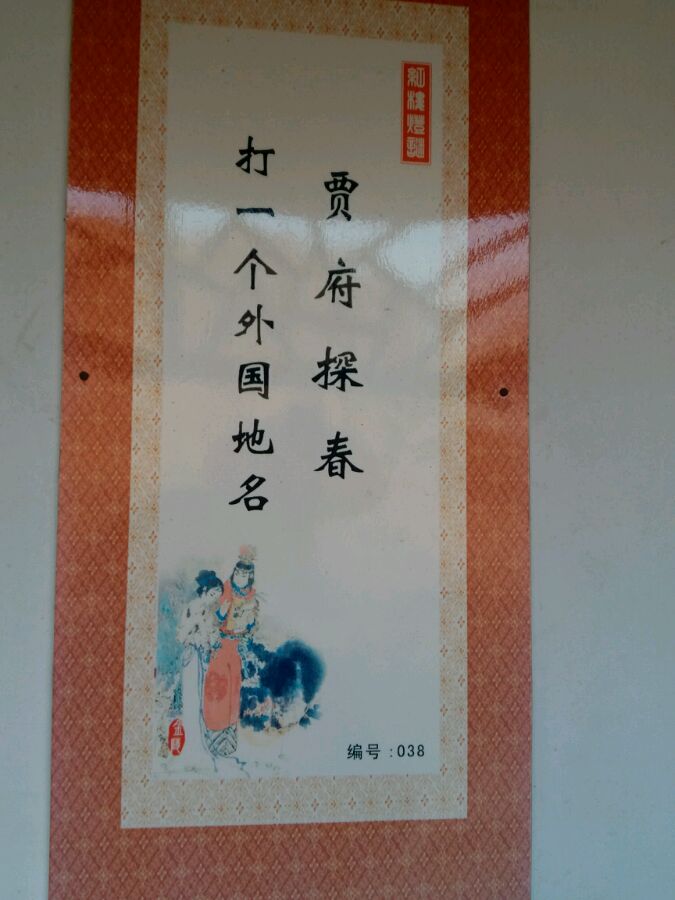 红楼灯谜
贾府探春
打一个外国地名
编号:038